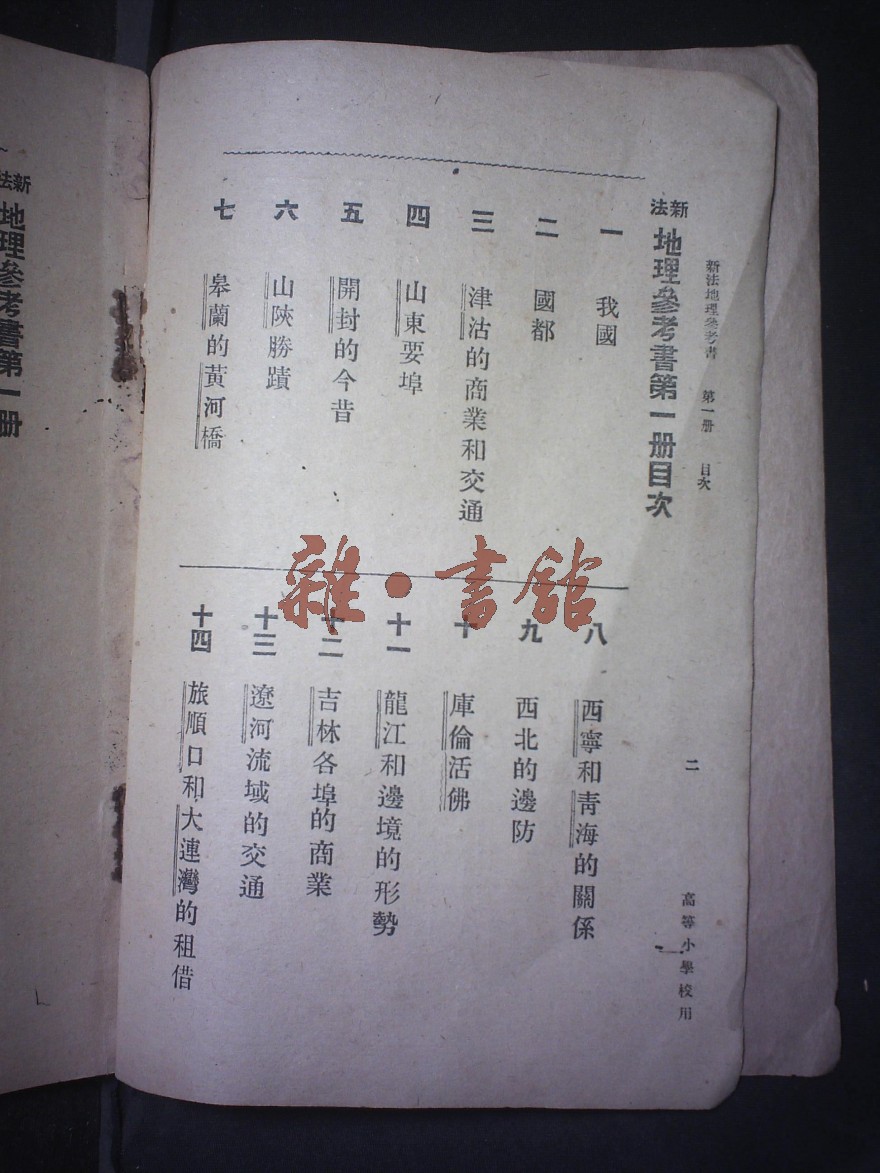 新法地理參考書 第一册 目次
二
高等小學校用
新法地理參考書第一册目次
一 我國
二 國都
三 津沽的商業和交通
四 山東要埠
五 開封的今昔
六 山陝勝蹟
七 皋蘭的黃河橋
八 西寧和青海的關係
九 西北的邊防
十 庫倫活佛
十一 龍江和邊境的形勢
十二 吉林各埠的商業
十三 遼河流域的交通
十四 旅順口和大連灣的租借
新法地理參考書第一册
雜·書館